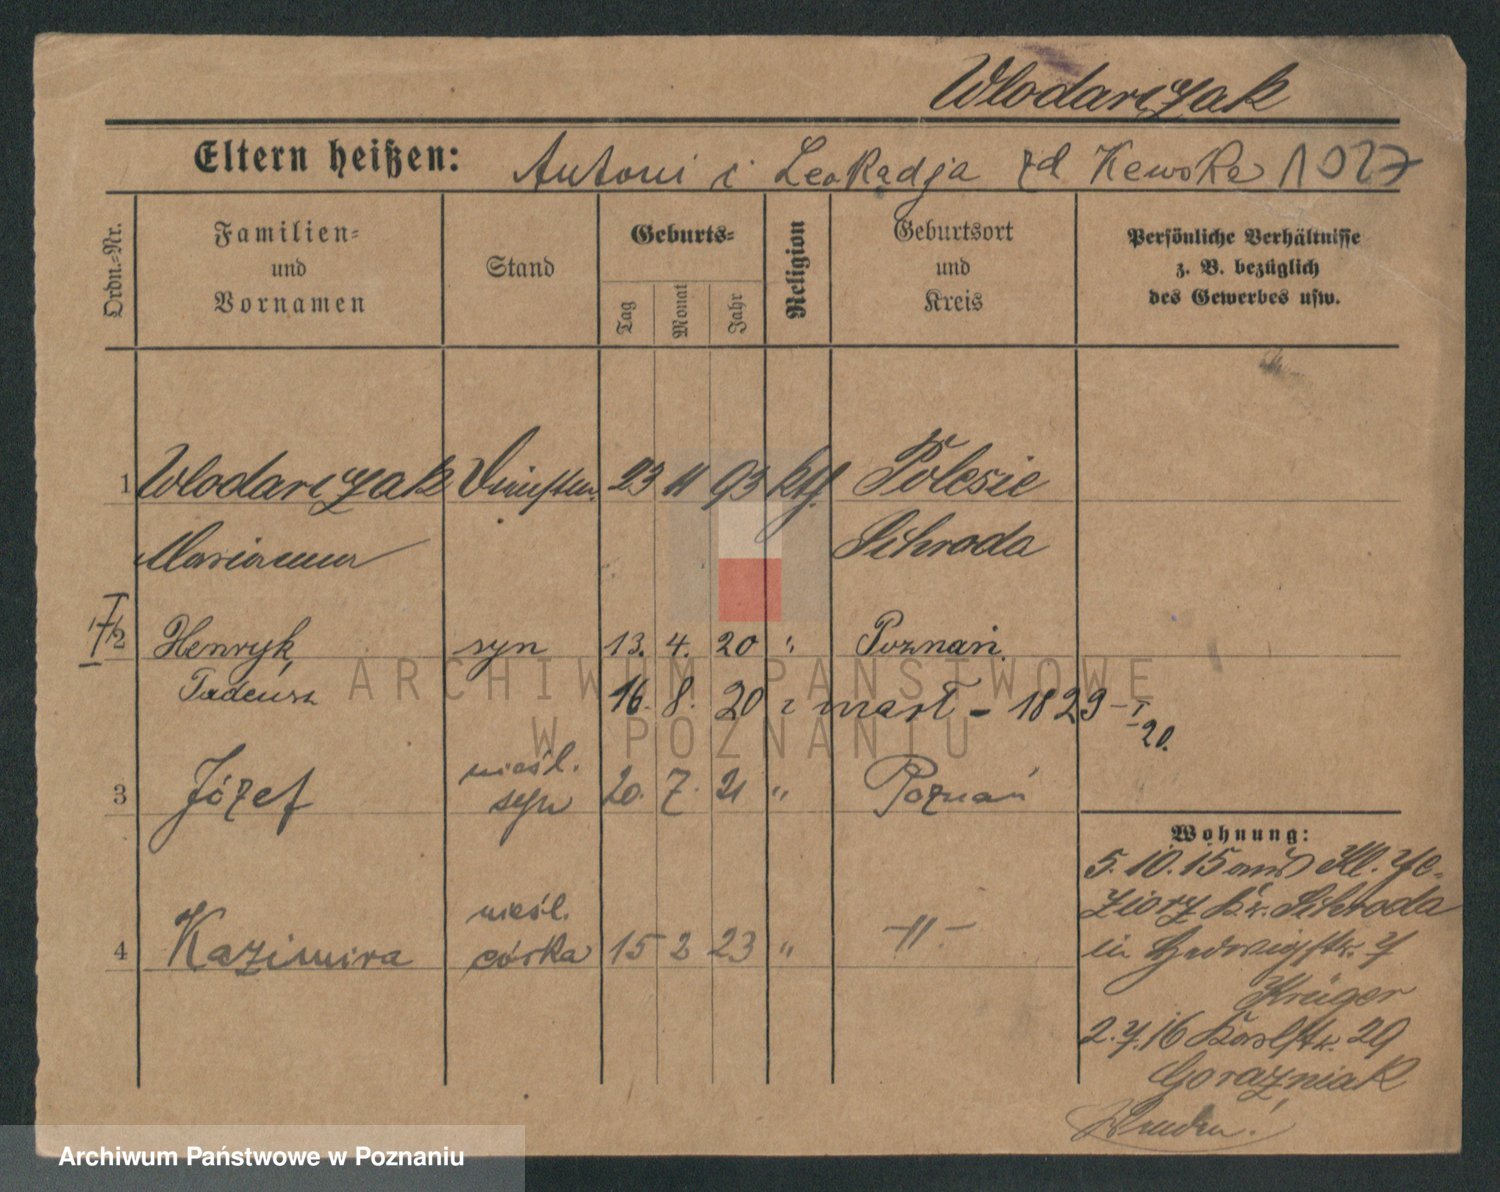 Wlodarczak
Eltern heißen: Antoni i Leokadja zd Kewska 1027
Ordn.-Nr.
Familien-
und
Vornamen
Stand
Geburts-
Tag
Monat
Jahr
Religion
Geburtsort
und
Kreis
Persönliche Verhältnisse
z. B. bezüglich
des Gewerbes usw.
1 Wlodarczak 23 11 93 kth. Polesie
Marianna Schroda
2 Henryk, syn 13. 4. 20 " Poznań.
Tadeusz 16. 8. 20 - 1829 - I
20.
nieśl.
3 Józef syn 20. 7. 21 " Poznań
Wohnung:
5. 10. 15 aus Kl. Je-
ziory Kr. Schroda
nieśl.
4 Kazimira córka 15 2 23 " -"-
in Hedwigstr. 7
Krüger
2. 7. 16 Karlstr. 29
Gorazniak
Archiwum Państwowe w Poznaniu
ARCHIWUM PAŃSTWOWE
W POZNANIU